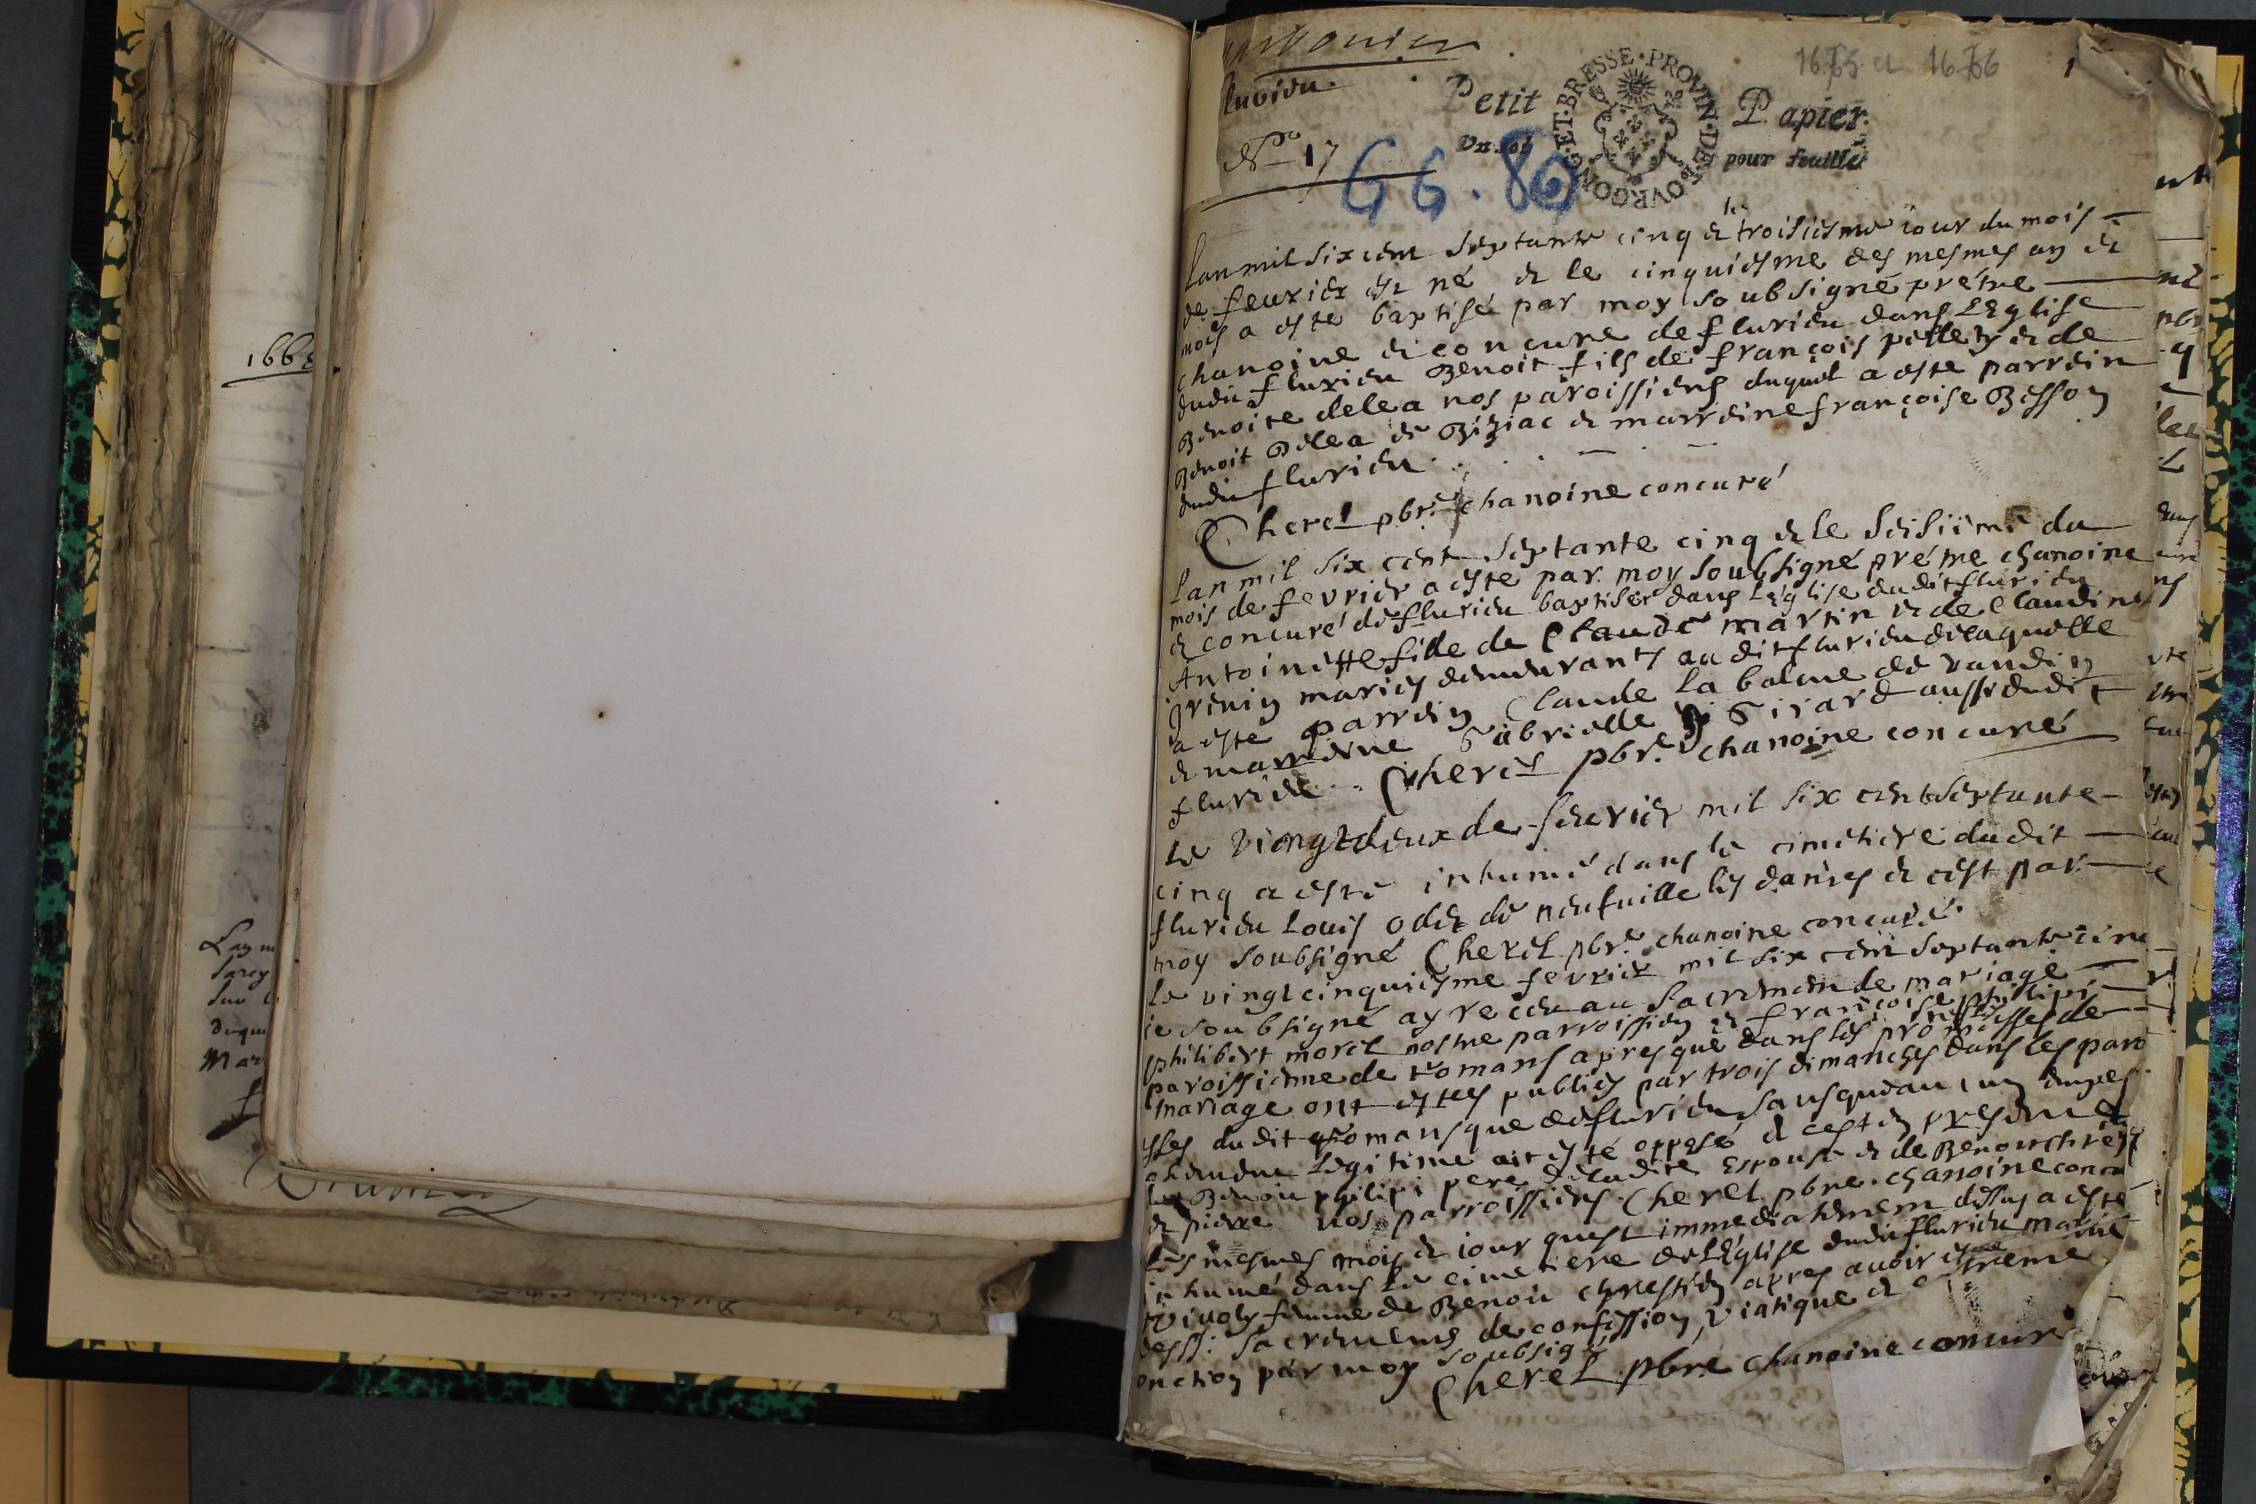 1668
fluvieu.
Petit Papier.
Un sol pour feuille
BOVRGONG·ET·BRESSE·PROVIN·DE
N° 17
GG. 80
1675 et 1676
1
Lan mil six cent septante cinq et le troisiesme iour du mois
de feurier est né et le cinquiesme des mesmes an et
mois a esté baptisé par moy soubsigné prétre
chanoine et concure de flurieu dans LEglise
dudit flurieu Benoit fils de françois et de
Benoite delea nos paroissiens duquel a esté parrein
Benoit Delea de Biziac et marreine françoise Besson
dudit flurieu
Cherel pbre chanoine concuré
Lan mil six cent septante cinq et le seisiéme du
mois de fevrier a esté par moy soubsigné prétre chanoine
et concuré de flurieu baptisée dans LEglise dudit flurieu
Antoinette fille de Claude martin et de Claudine
Grenin mariés demeurants audit flurieu de laquelle
a este parrein Claude la balme de vandein
et marreine Gabrielle Girard aussi dudit
flurieu. Cherel pbre chanoine concuré
Le vingtdeux de feuvrier mil six cent septante
cinq a esté inhumé dans le cimétiere dudit
flurieu Louis odet de neufuille les dames et cest par
moy soubsigné Cherel pbre chanoine concuré.
Le vingtcinquiesme fevrier mil six cent septante cinq
ie soubsigné ay receu au sacrement de mariage
philibert morel nostre parroissien et françoise philipi
paroissienne de romans apres que dans les promesses de
mariage ont estees publiés par trois dimanches dans les paroi
sses dudit romans que de flurieu sans queaucun empes
chement legitime ait esté opposé et cest en presence
de Benoit philipi pere de ladite Espouse et de Benoit chrestien
et pierre nos parroissiens. Cherel pbre. chanoine concu
Les mesmes mois et iour quest immediatement dessus a esté
inhumé dans le cimetiere de LEglise dudit flurieu
femme de Benoit chrestien apres auoir
sacremens de confession, viatique et extreme
onction par moy soubsigé
Cherel pbre chanoine concuré